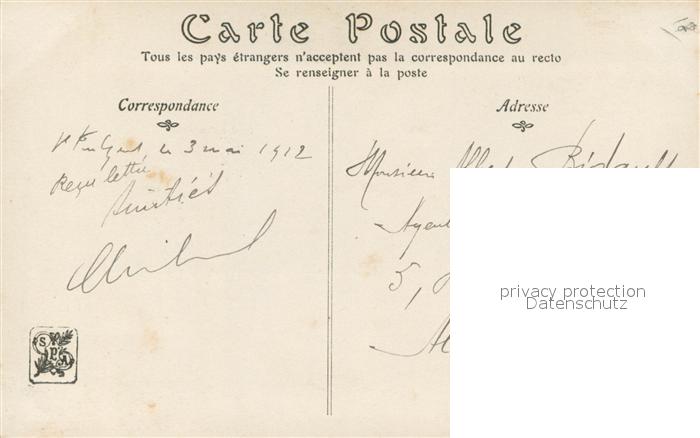 Carte Postale
Tous les pays étrangers n'acceptent pas la correspondance au recto
Se renseigner à la poste
Correspondance
Adresse
3 mai 1912
Reçu lettre
Amitiés
Monsieur Bidault
Agent
5,
privacy protection
Datenschutz
SPA